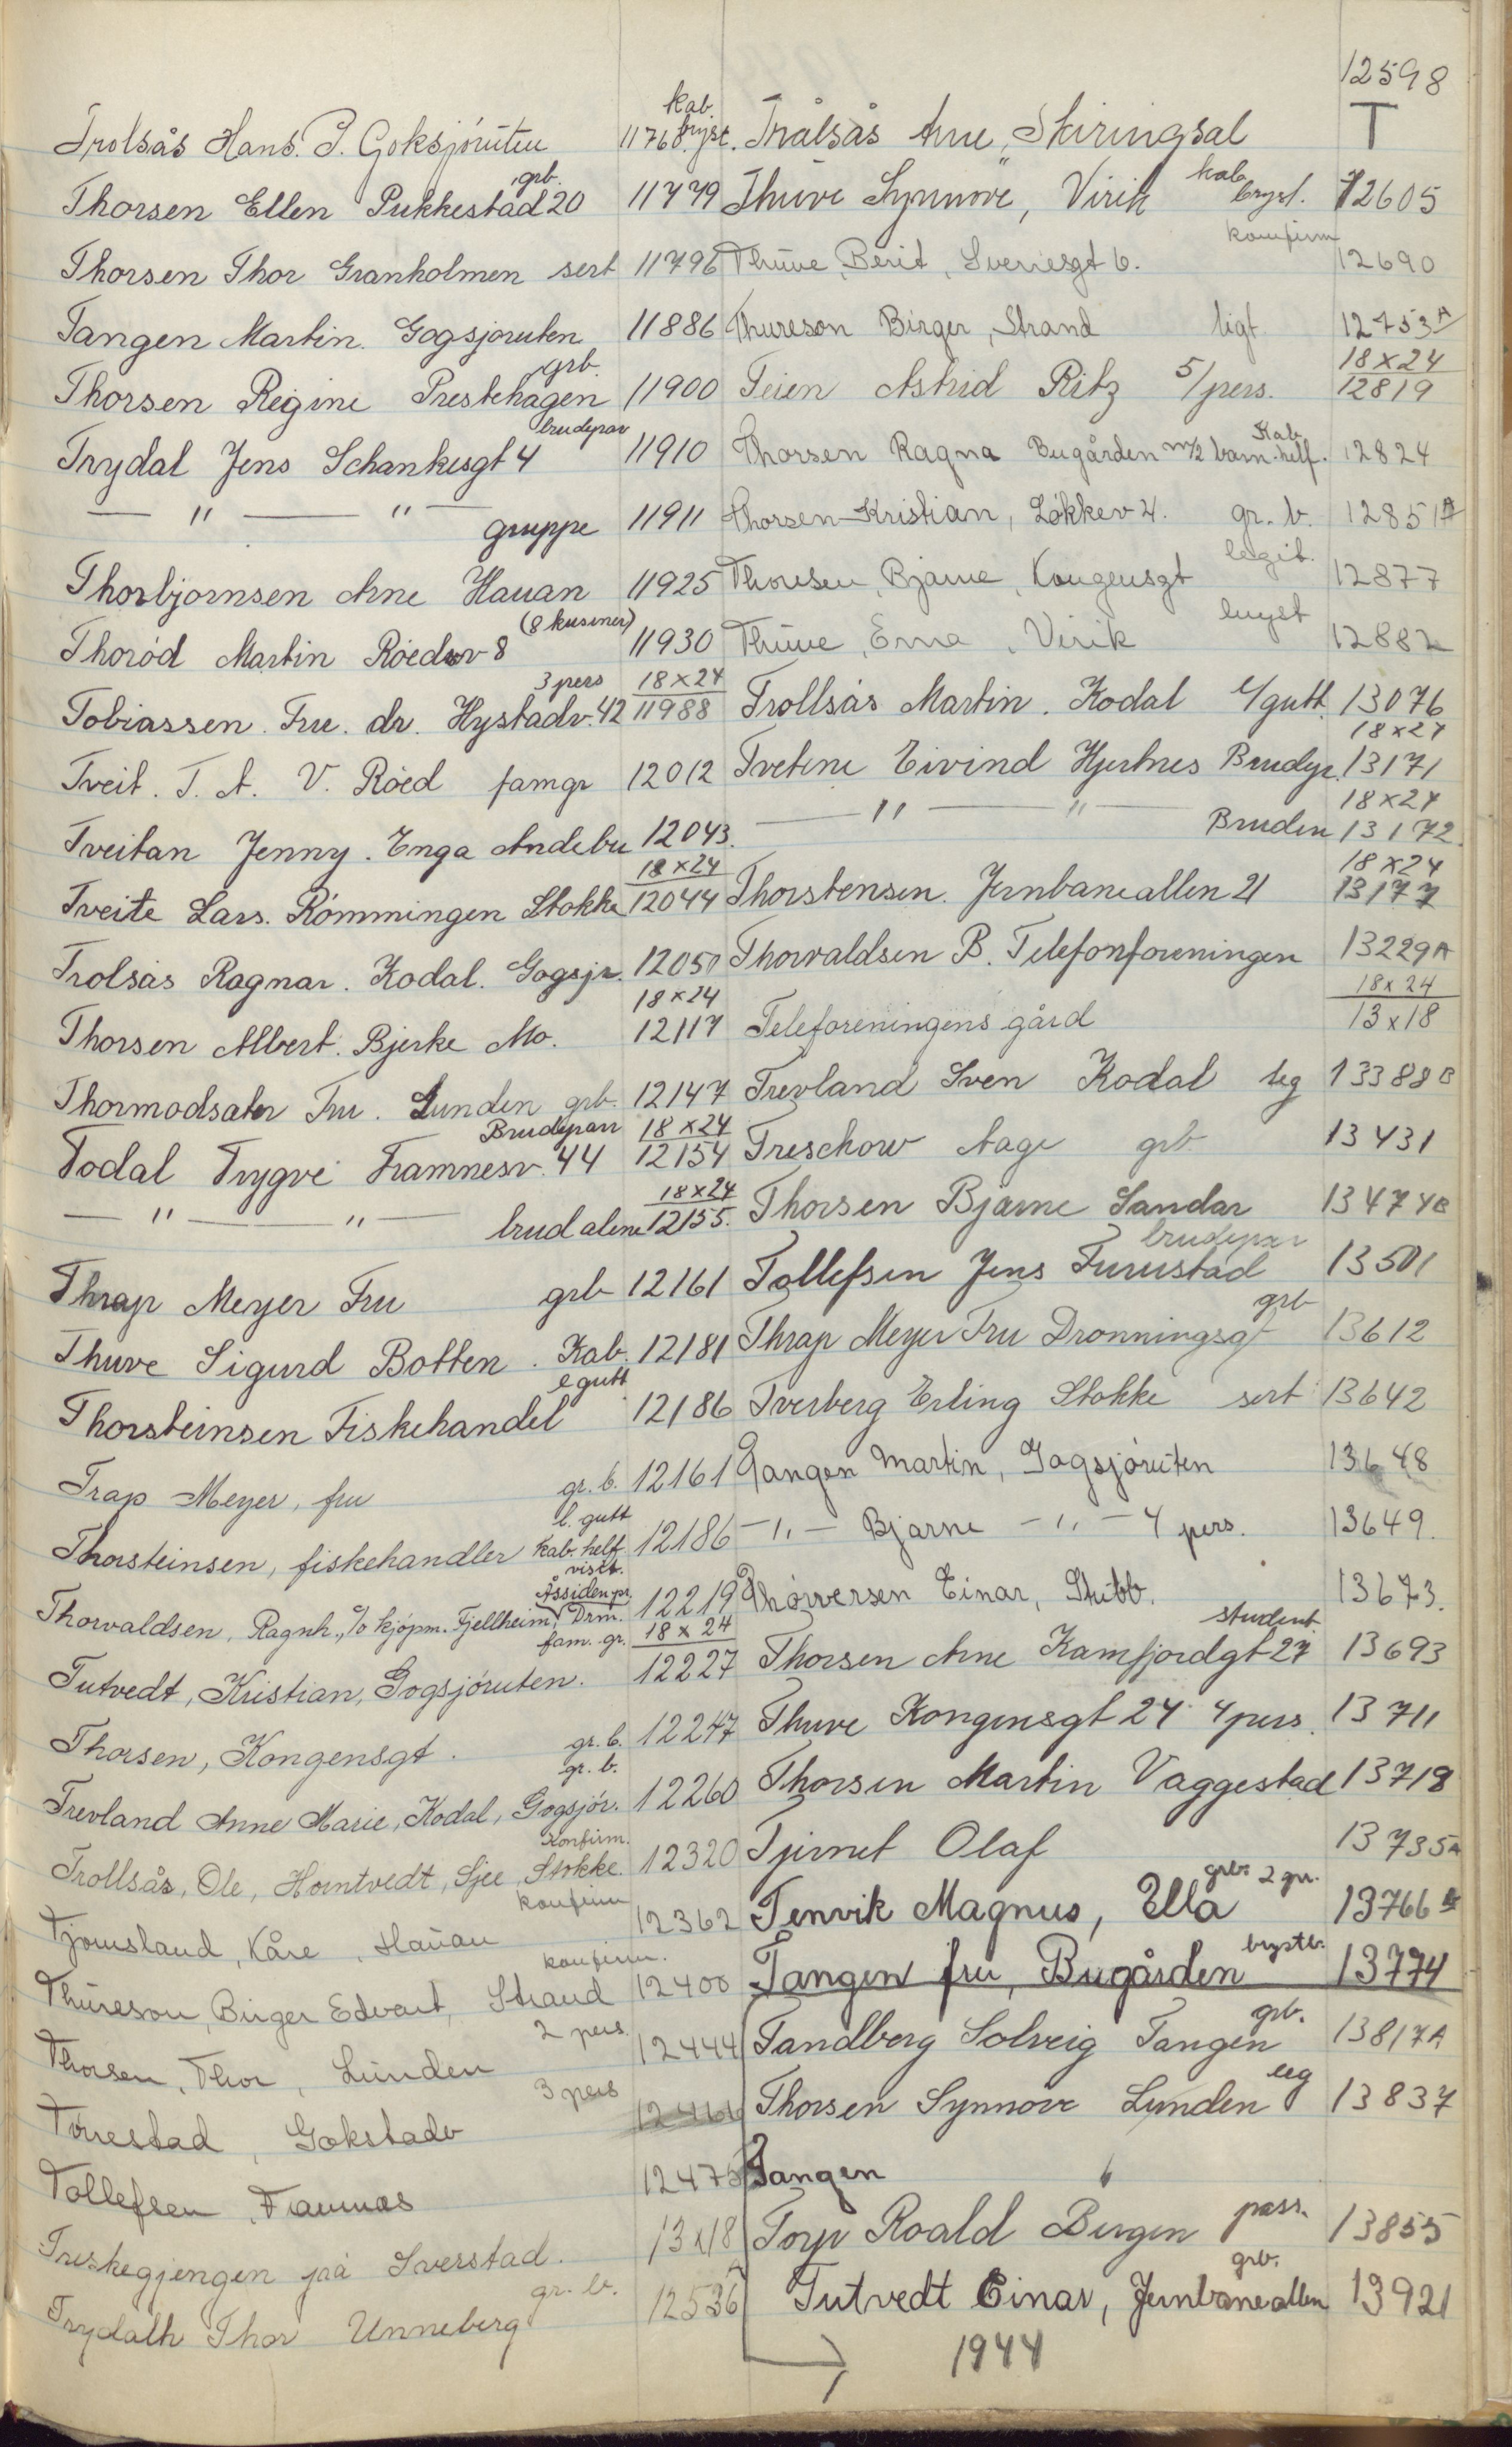 Trolsås Hans. P. Goksjöruten kab. bryst. 11768
Thorsen Ellen Pukkestad 20 grb. 11779
Thorsen Thor Granholmen sert 11796
Tangen Martin. Gogsjoruten 11886
Thorsen Regine Prestehagen grb. 11900
Trydal Jens Schankesgt 4 brudepar 11910
— " — " — gruppe 11911
Thorbjornsen Arne Hauan 11925
Thoröd Martin Röedsv 8 (8 kusiner) 11930
Tobiassen. Fru. dr. Hystadv. 42 3 pers 18×24 11988
Tveit. T. A. V. Röed famgr 12012
Tveitan Jenny. Enga Andebu 12043.
Tveite Lars. Römmingen Stokke 18×24 12044
Trolsås Ragnar. Kodal. Gogsjr. 12050
Thorsen Albert. Bjerke Mo. 18×24 12117
Thormodsater Fru. Lunden grb. 12147
Todal Trygve Framnesv. 44 Brudepar 18×24 12154
— " — " — brud alene 18×24 12155.
Thrap Meyer Fru grb 12161
Thuve Sigurd Botten. Kab. 12181
Thorsteinsen Fiskehandel l gutt 12186
Trap Meyer, fru gr. b. 12161
Thorsteinsen, fiskehandler l. gutt kab. helf. 12186
Thorvaldsen, Ragnh., c/o kjöpm. Fjellheim, Drm. visit. Åssiden pr. 12219
Tutvedt, Kristian, Gogsjöruten. fam. gr. 18 × 24 12227
Thorsen, Kongensgt. gr. b. 12247
Trevland Anne Marie, Kodal, Gogsjör. gr. b. 12260
Trollsås, Ole, Horntvedt, Sjee, Stokke. Konfirm. 12320
Tjomsland, Kåre, Hauan konfirm 12362
Thureson, Birger Edvart, Strand konfirm. 12400
Thorsen, Thor, Lunden 2 pers. 12444
Torrestad, Gokstadv 3 pers
Tollefsen, Framnes 12475
Treskegjengen på Sverstad. 13x18
Trydalh Thor Unneberg gr. b. 12536
12598
T
Trålsås Arne, Skiringsal
Thuve Synnove, Virik kab. bryst. 12605
Thuve, Berit, Sverresgt 6. konfirm 12690
Thureson Birger, Strand ligt 12753 A
Teien Astrid Ritz 5/pers. 18×24 12819
Thorsen Ragna Bugården m/2 barn. Kab. helf. 12824
Thorsen Kristian, Løkkev 4. gr. b. 12851 A
Thoresen, Bjarne, Kongensgt legit. 12877
Thuve, Erna, Virik bryst 12882
Trollsås Martin. Kodal l/gutt. 13076
Tvetene Eivind Hjertnes Brudepr. 18×24 13171
— " — " — Bruden 18×24 13172.
Thorstensen. Jernbanealleen 21 18×24 13177
Thorvaldsen B. Telefonforeningen 13229 A
Teleforeningens gård 18×24 13×18
Trevland Sven Kodal leg 13388 B
Treschow Aage grb 13431
Thorsen Bjarne Sandar 13474 B
Tollefsen Jens Furustad brudepar 13501
Thrap Meyer Fru Dronningsgt grb 13612
Tverberg Erling Stokke sert 13642
Tangen Martin, Gogsjöruten 13648
— " — Bjarne — " — 4 pers. 13649.
Thorversen Einar, Stubb. 13673.
Thorsen Arne Kamfjordgt 27 student. 13693
Thuve Kongensgt 24 4 pers. 13711
Thorsen Martin Vaggestad 13718
Tjirnet Olaf 13735 A
Tenvik Magnus, Ella grb. 2 gr. 13766
Tangen fru, Bugården brystb. 13774
Tandberg Solveig Tangen grb. 13817 A
Thorsen Synnove Lunden leg 13837
Tangen
Torp Roald Bergen pass. 13855
Tutvedt Einar, Jernbanealleen grb. 13921
1944